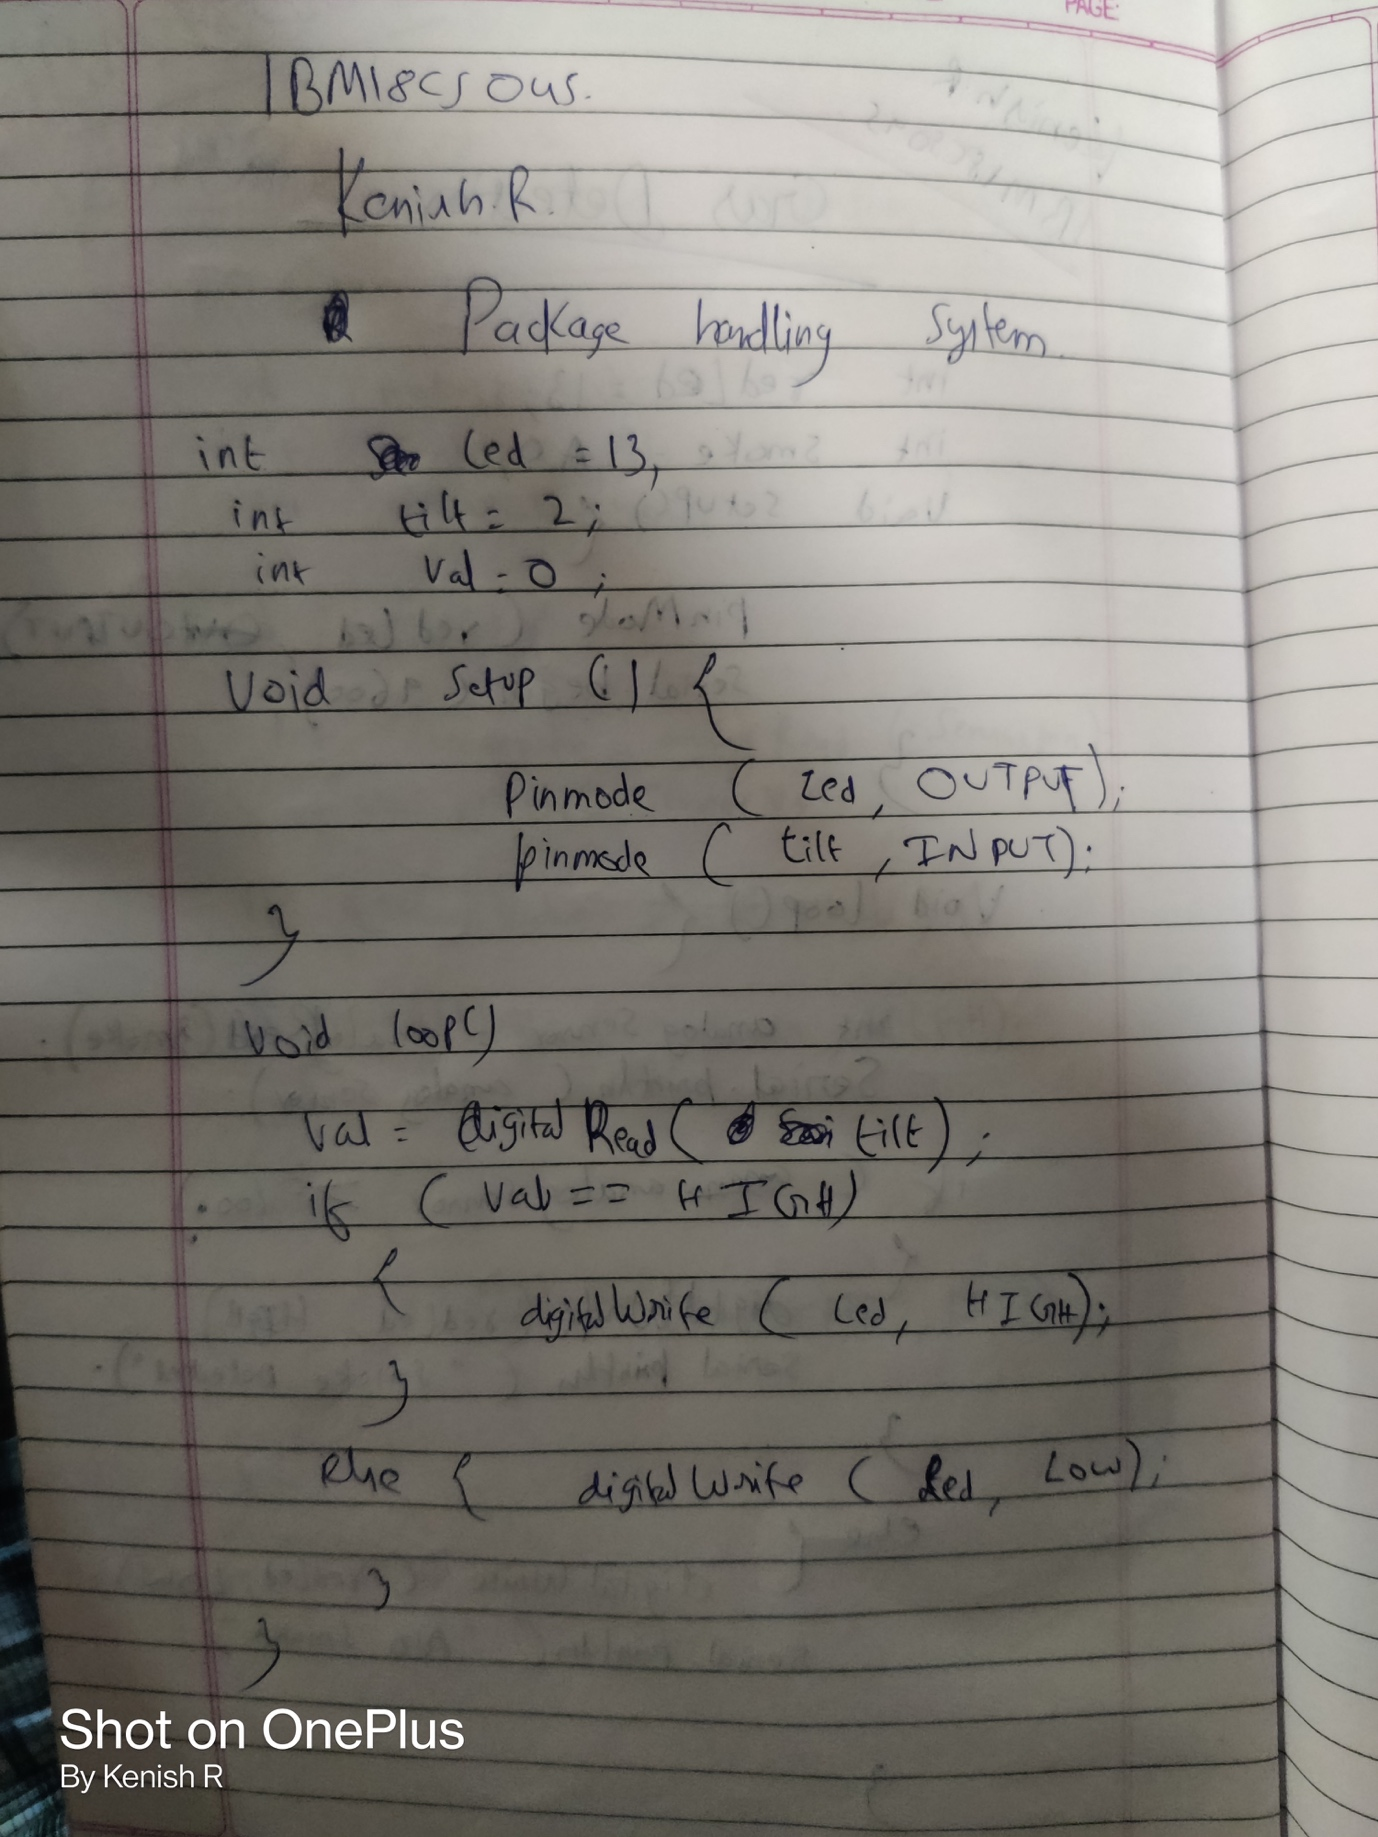 PAGE:
1BM18CS045.
Kenish.R.
Package handling System.
int led = 13,
int tilt = 2;
int Val = 0 ;
Void Setup () {
Pinmode ( led, OUTPUT);
pinmode ( tilt , INPUT);
}
Void loop()
Val = digitalRead( tilt) ;
if ( Val == HIGH)
{
digitalWrite ( led, HIGH);
}
else { digitalWrite ( led, Low);
}
}
Shot on OnePlus
By Kenish R